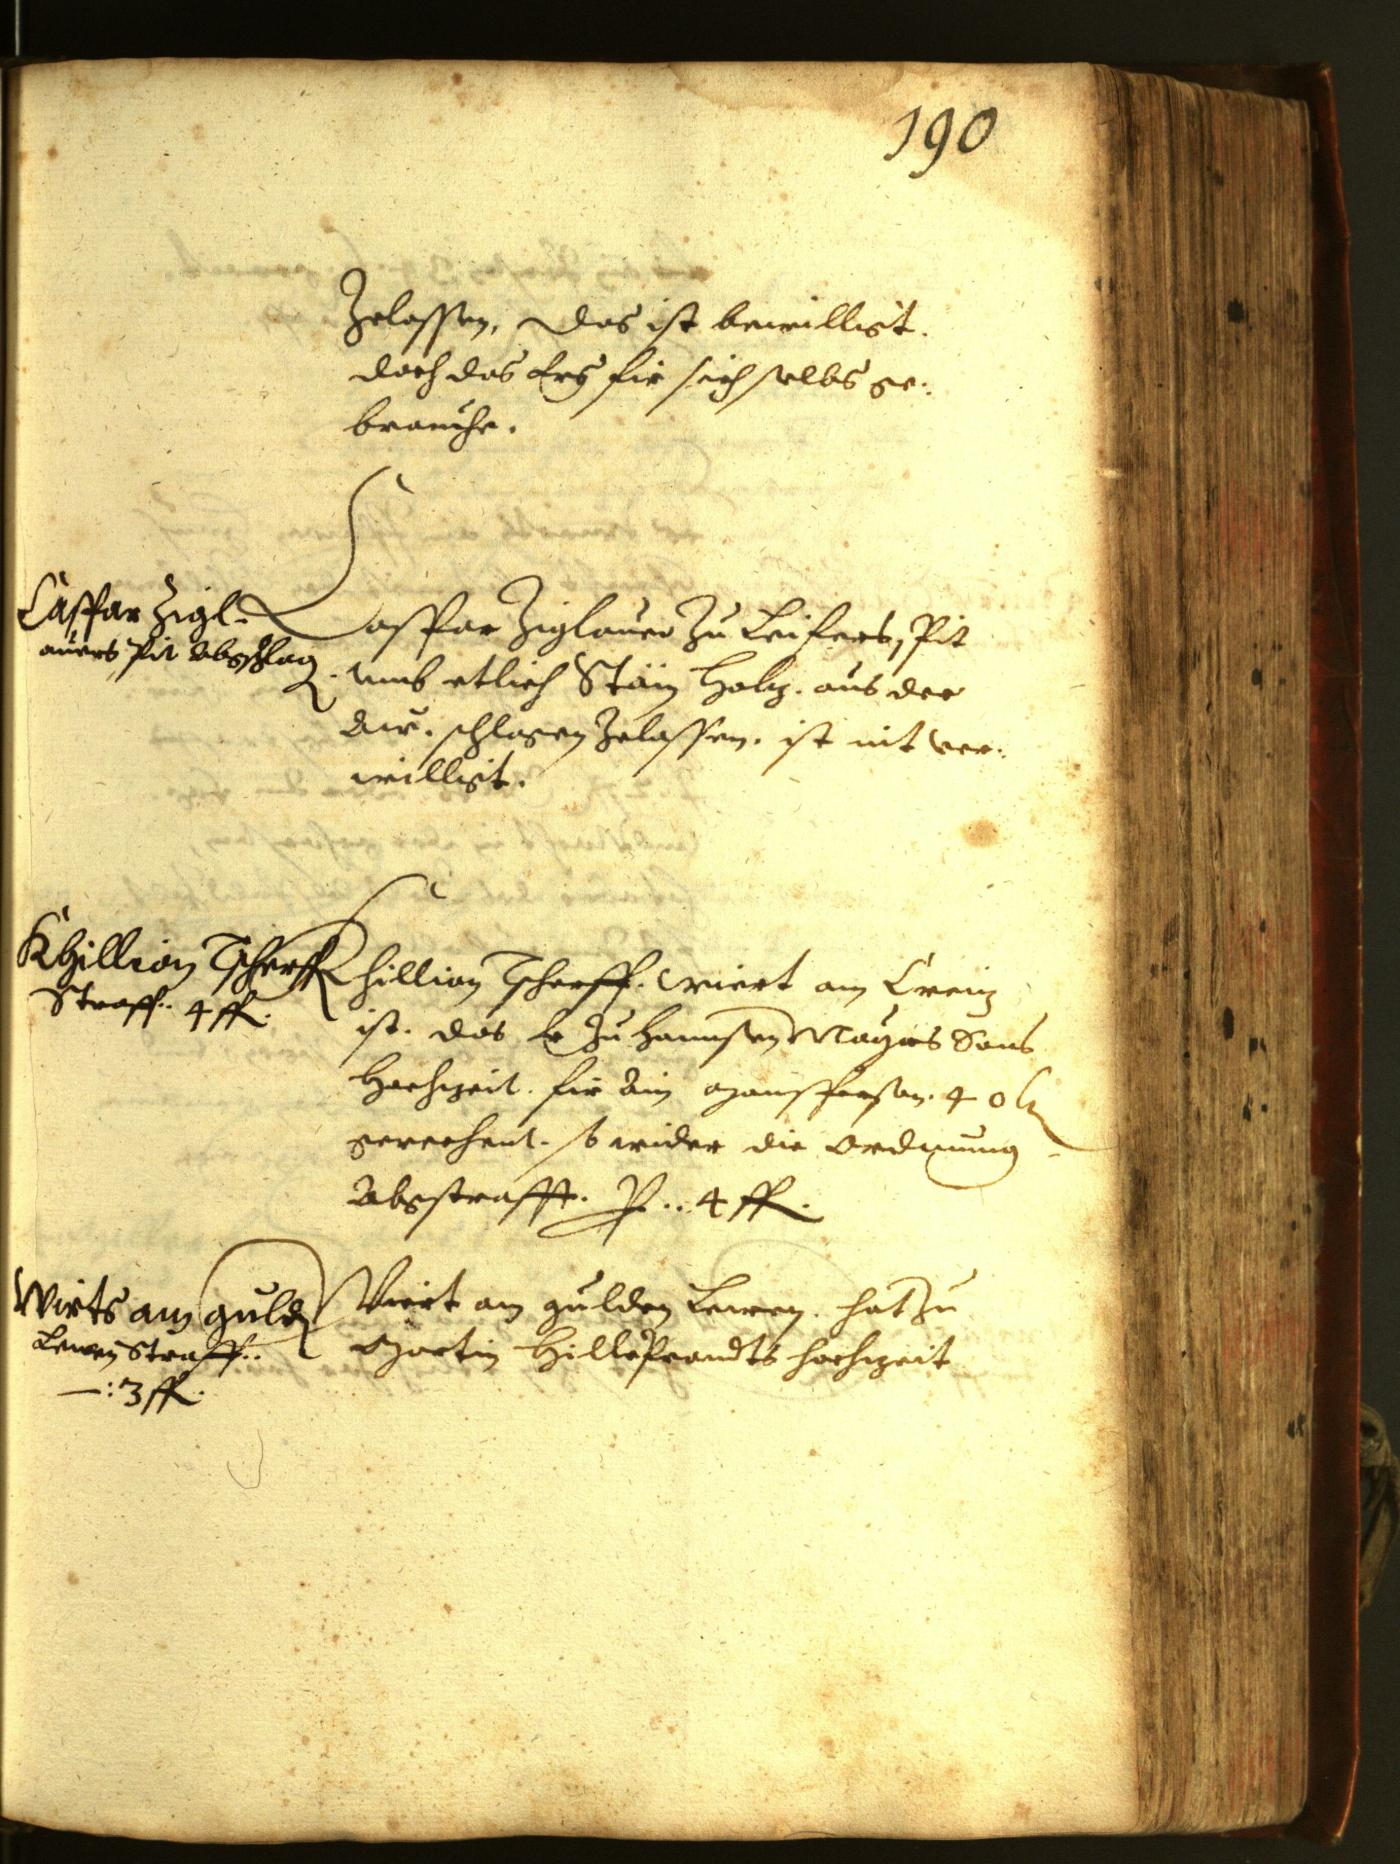 190
Zelassen, Das ist bewilligt.
doch das Ers fir sich selbs ge-
brauche.
Caspar Zigl-
auers Pit Abschlag
Caspar Ziglauer zu Leifers, Pit
umb etlich Stäm Holz. aus der
Aw. schlagen Zelassen. ist nit ver-
willigt.
Khillian Tscherff
Straff. 4 fl.
Khillian Tscherff. Wiert am Creiz
ist. das Er zu Hannsen Mayrs Sons
Hochzeit. fir Ain mansperson. 40 kr
gerechent. so wider die Ordnung
Abgstrafft. P. 4 fl.
Wirts am guldn
Lewen Straff..
—: 3 fl.
Wiert am gulden Lewen. hat zu
Martin Hilleprandts hochzeit